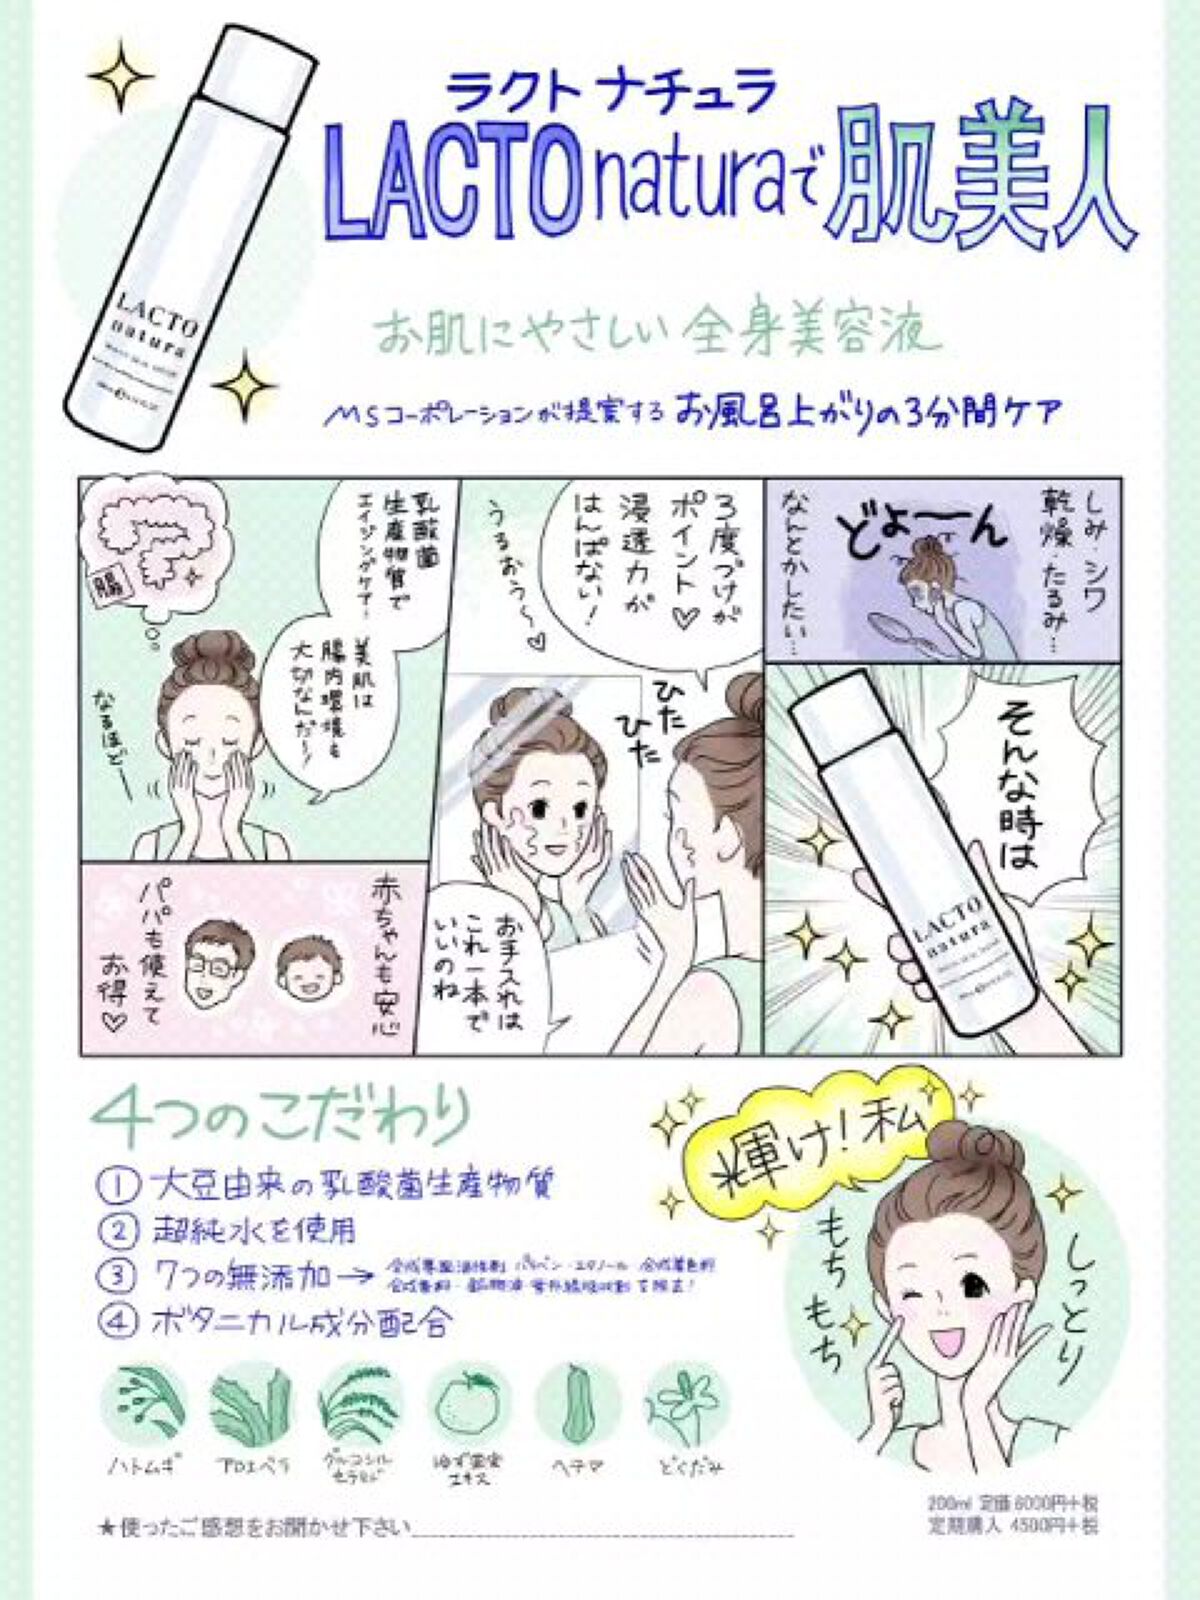 ラクト ナチュラ
LACTO naturaで肌美人
お肌にやさしい 全身美容液
MSコーポレーションが提案する お風呂上がりの3分間ケア
LACTO
natura
しみ・シワ
乾燥・たるみ…
どよーん
なんとかしたい…
そんな時は
LACTO
natura
3度づけが
ポイント♡
浸透力が
はんぱない!
うるおう〜♡
ひた
ひた
お手入れは
これ一本で
いいのね
乳酸菌
生産物質で
エイジングケア!
美肌は
腸内環境も
大切なんだ〜!
腸
なるほどー
赤ちゃんも安心
パパも使えて
お得♡
4つのこだわり
① 大豆由来の乳酸菌生産物質
② 超純水を使用
③ 7つの無添加→ 合成界面活性剤 パラベン・エタノール・合成着色料
合成香料・鉱物油・紫外線吸収剤 を除去!
④ ボタニカル成分配合
ハトムギ
アロエベラ
グルコシル
セラミド
ゆず果実
エキス
ヘチマ
どくだみ
輝け!私
もち
もち
しっとり
★使ったご感想をお聞かせ下さい
200ml 定価6000円+税
定期購入 4500円+税